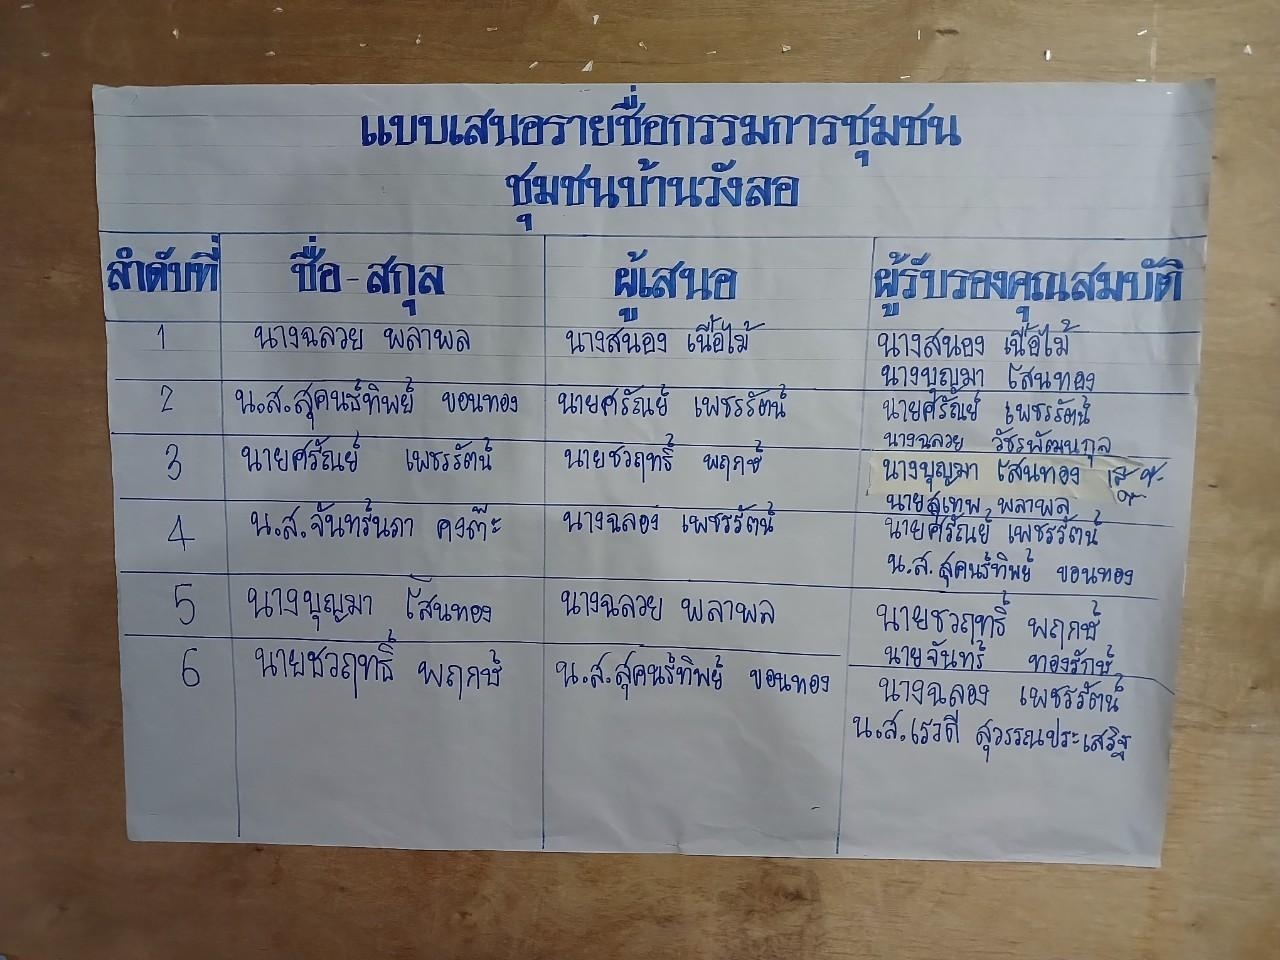 แบบเสนอรายชื่อกรรมการชุมชน
ชุมชนบ้านวังลอ
ลำดับที่ ชื่อ-สกุล ผู้เสนอ ผู้รับรองคุณสมบัติ
1 นางฉลวย พลาพล นางสนอง เนื้อไม้ นางสนอง เนื้อไม้
นางบุญมา โสนทอง
2 น.ส.สุคนธ์ทิพย์ ขอนทอง นายศรัณย์ เพชรรัตน์ นายศรัณย์ เพชรรัตน์
นางฉลวย วัชรพัฒนกุล
3 นายศรัณย์ เพชรรัตน์ นายชวฤทธิ์ พฤกษ์ นางบุญมา โสนทอง
นายสุเทพ พลาพล
4 น.ส.จันทร์นภา คงต๊ะ นางฉลอง เพชรรัตน์ นายศรัณย์ เพชรรัตน์
น.ส.สุคนธ์ทิพย์ ขอนทอง
5 นางบุญมา โสนทอง นางฉลวย พลาพล นายชวฤทธิ์ พฤกษ์
นายจันทร์ ทองรักษ์
6 นายชวฤทธิ์ พฤกษ์ น.ส.สุคนธ์ทิพย์ ขอนทอง นางฉลอง เพชรรัตน์
น.ส.เรวดี สุวรรณประเสริฐ